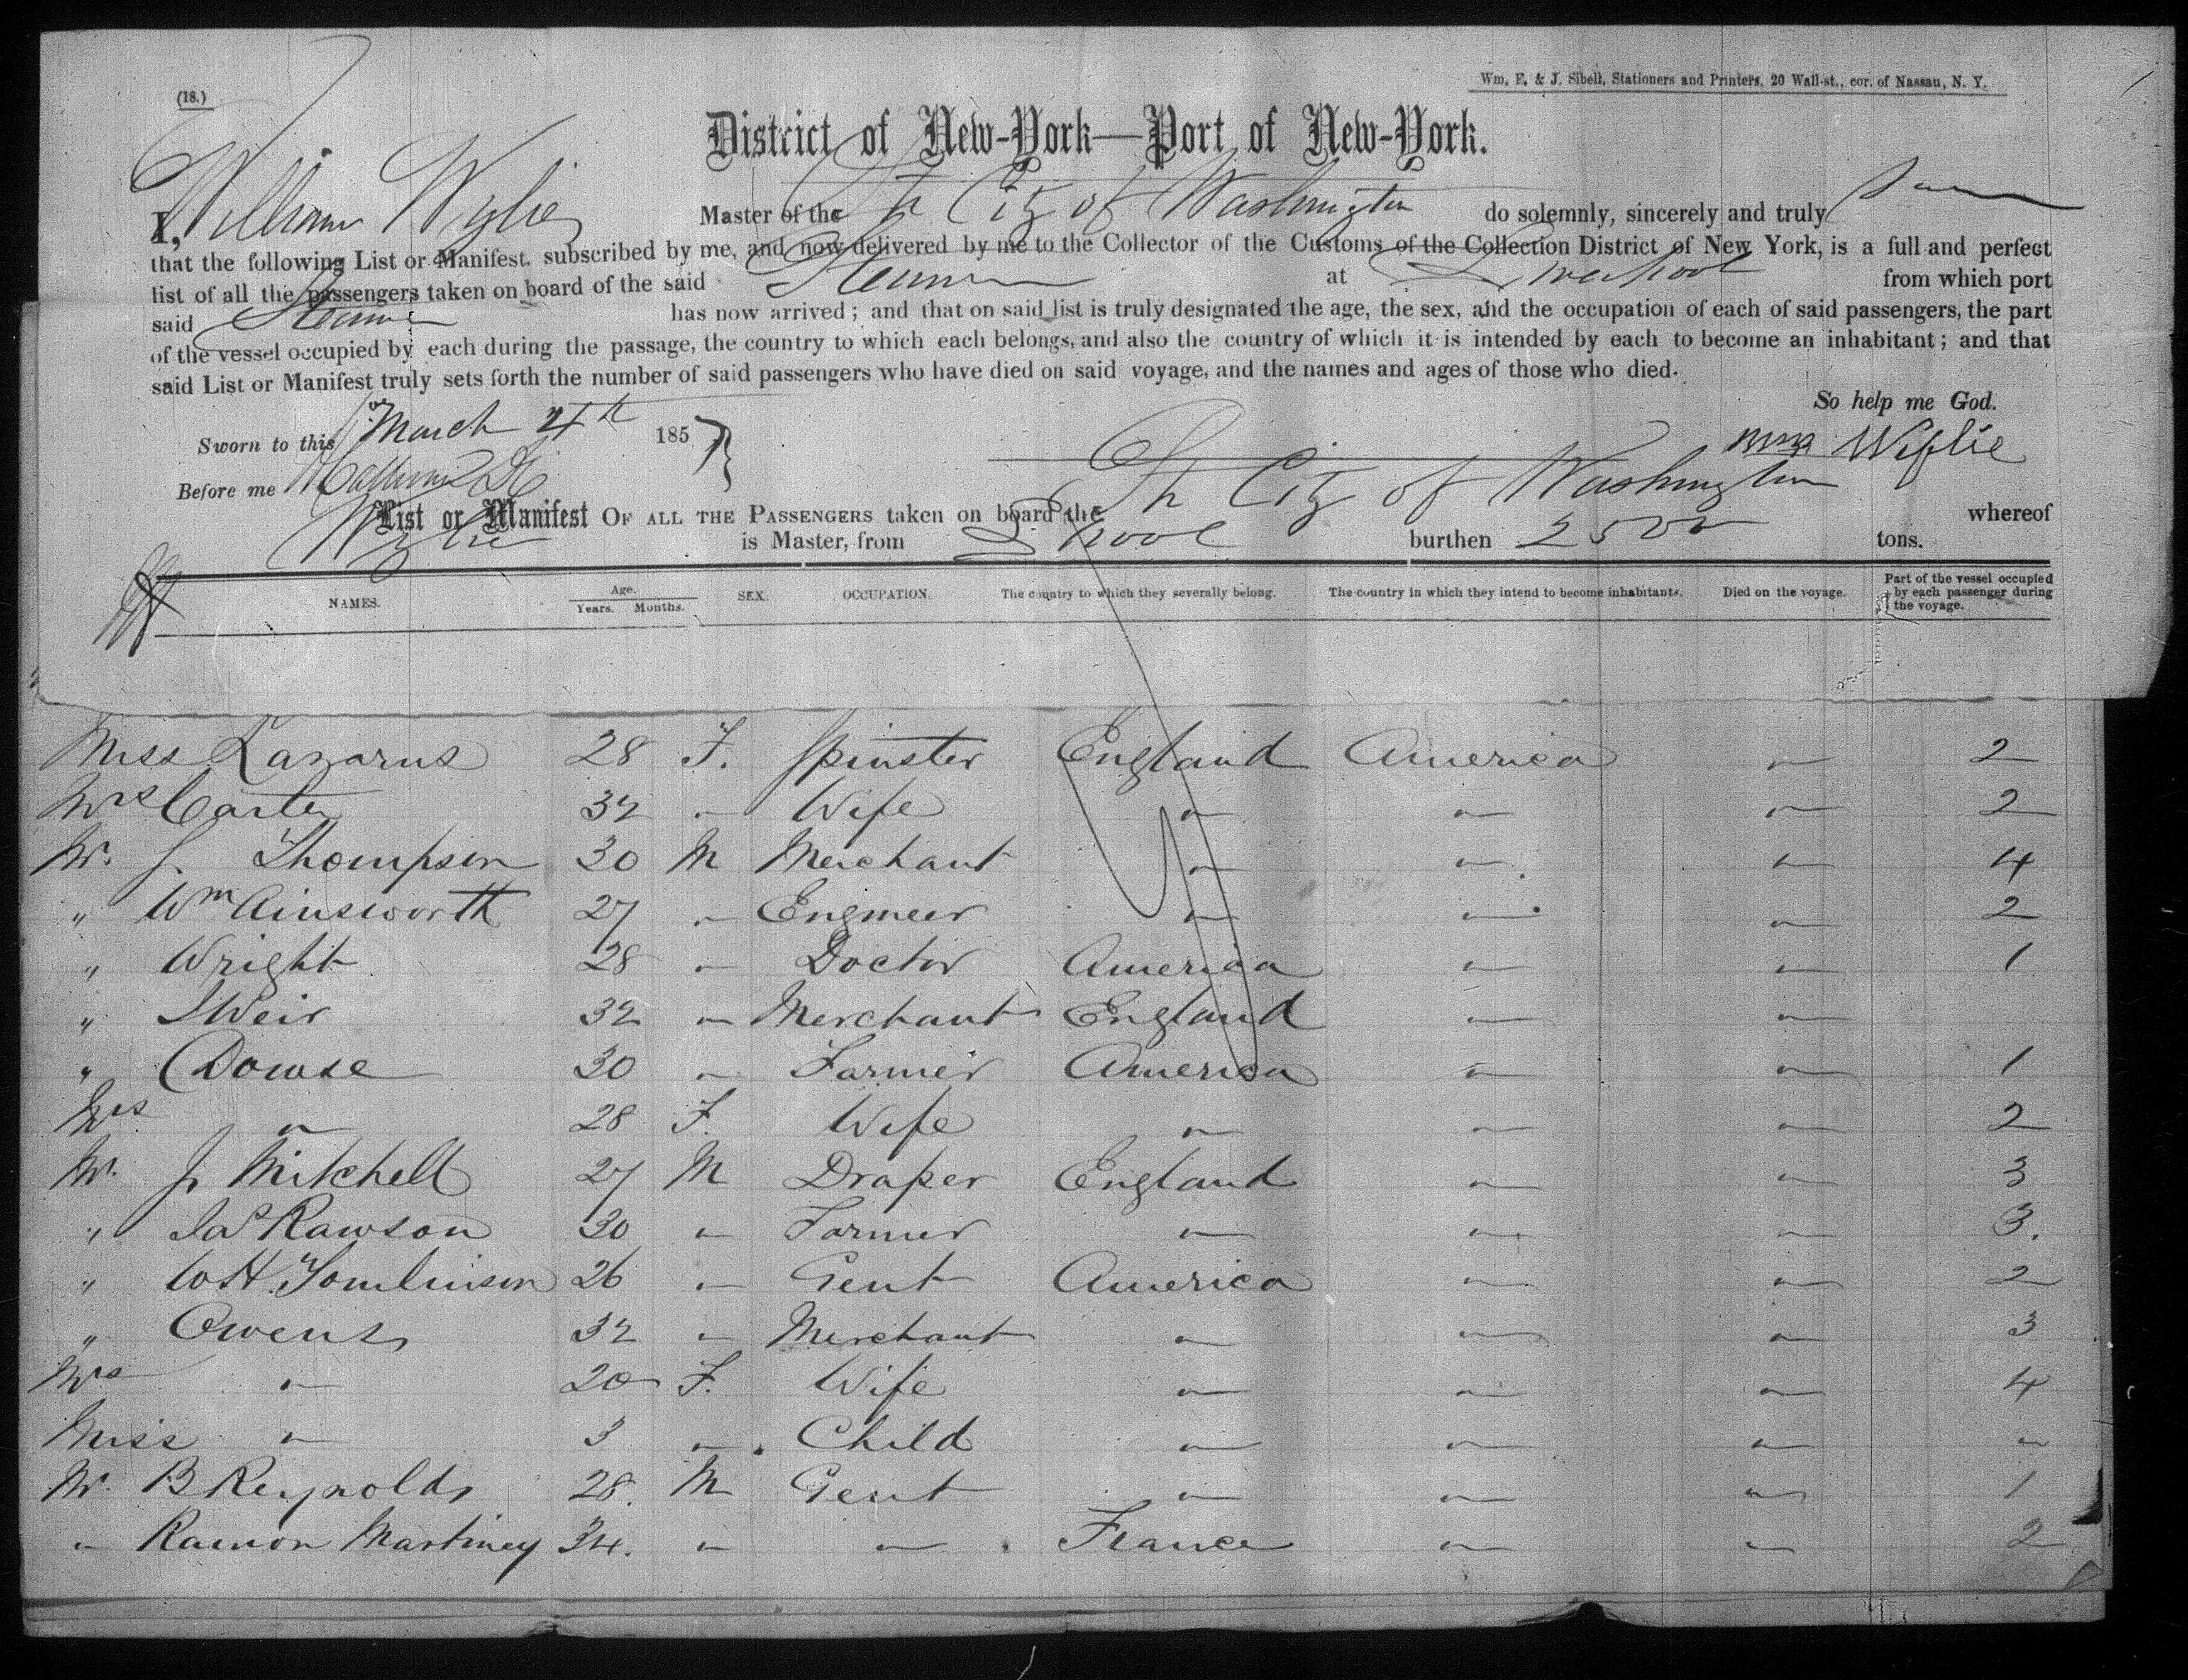 (18.)
Wm. E. & J. Sibell, Stationers and Printers, 20 Wall-st., cor. of Nassau, N. Y.
District of New-York—Port of New-York.
I, William Wylie Master of the St City of Washington do solemnly, sincerely and truly
that the following List or Manifest, subscribed by me, and now delivered by me to the Collector of the Customs of the Collection District of New York, is a full and perfect
list of all the passengers taken on board of the said Steamer at Liverpool from which port
said Steamer has now arrived; and that on said list is truly designated the age, the sex, and the occupation of each of said passengers, the part
of the vessel occupied by each during the passage, the country to which each belongs, and also the country of which it is intended by each to become an inhabitant; and that
said List or Manifest truly sets forth the number of said passengers who have died on said voyage, and the names and ages of those who died.
So help me God.
Sworn to this March 4th 1857
Wm Wylie
Before me
List or Manifest OF ALL THE PASSENGERS taken on board the St City of Washington whereof
Wylie is Master, from L'pool burthen 2500 tons.
NAMES. Age. Years. Months. SEX. OCCUPATION. The country to which they severally belong. The country in which they intend to become inhabitants. Died on the voyage. Part of the vessel occupied by each passenger during the voyage.
Miss Lazarus 28 F. Spinster England America " 2
Mrs Carter 32 " Wife " " " 2
Mr. J. Thompson 30 M Merchant " " " 4
" Wm Ainsworth 27 " Engineer " " " 2
" Wright 28 " Doctor America " " 1
" Weir 32 " Merchant England " "
" Dowse 30 " Farmer America " " 1
Mrs " 28 F. Wife " " " 2
Mr. J Mitchell 27 M Draper England " " 3
" Jas Rawson 30 " Farmer " " " 3.
" W H. Tomlinson 26 " Gent America " " 2
" Owens 32 " Merchant " " " 3
Mrs " 20 F. Wife " " " 4
Miss " 3 " Child " " " "
Mr. B Reynolds 28. M Gent " " " 1
" Ramon Martiney 34. " " France " " 2